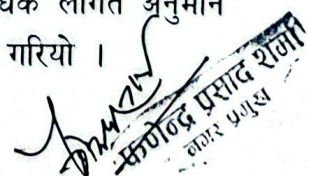 लागत अनुमान
गरियो ।
फणेन्द्र प्रसाद शर्मा
नगर प्रमुख